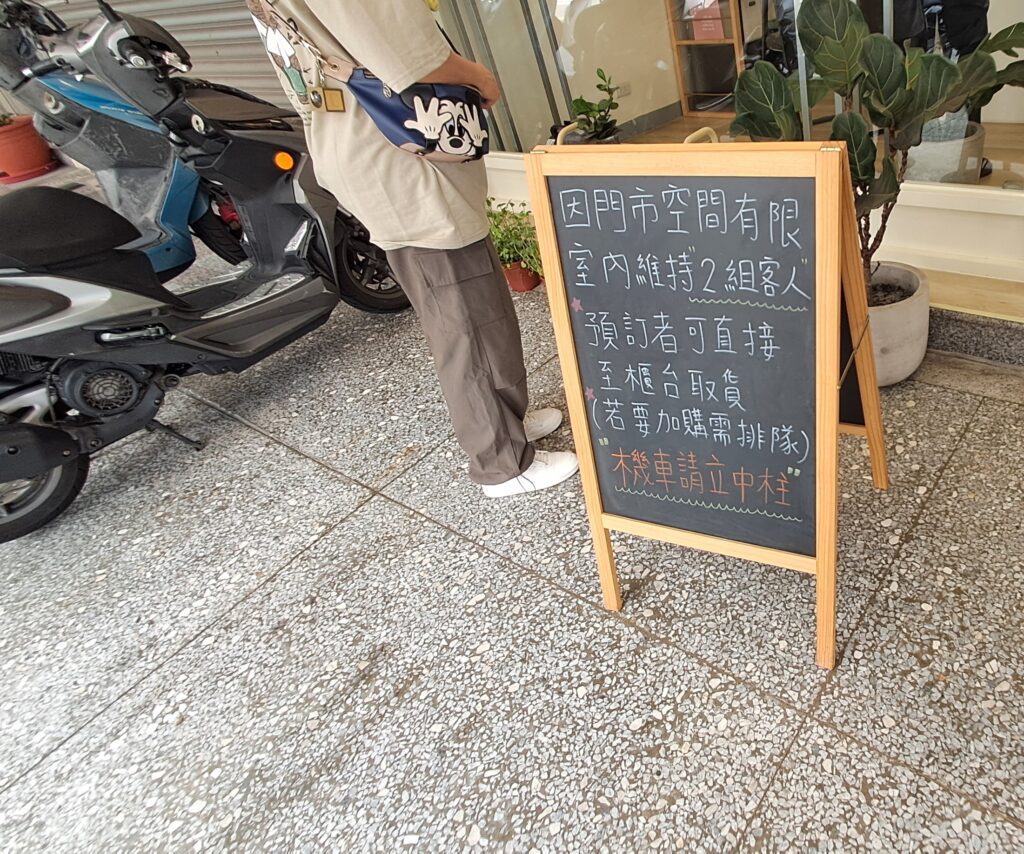 因門市空間有限
室內維持"2組客人"
預訂者可直接
至櫃台取貨
(若要加購需排隊)
"機車請立中柱"